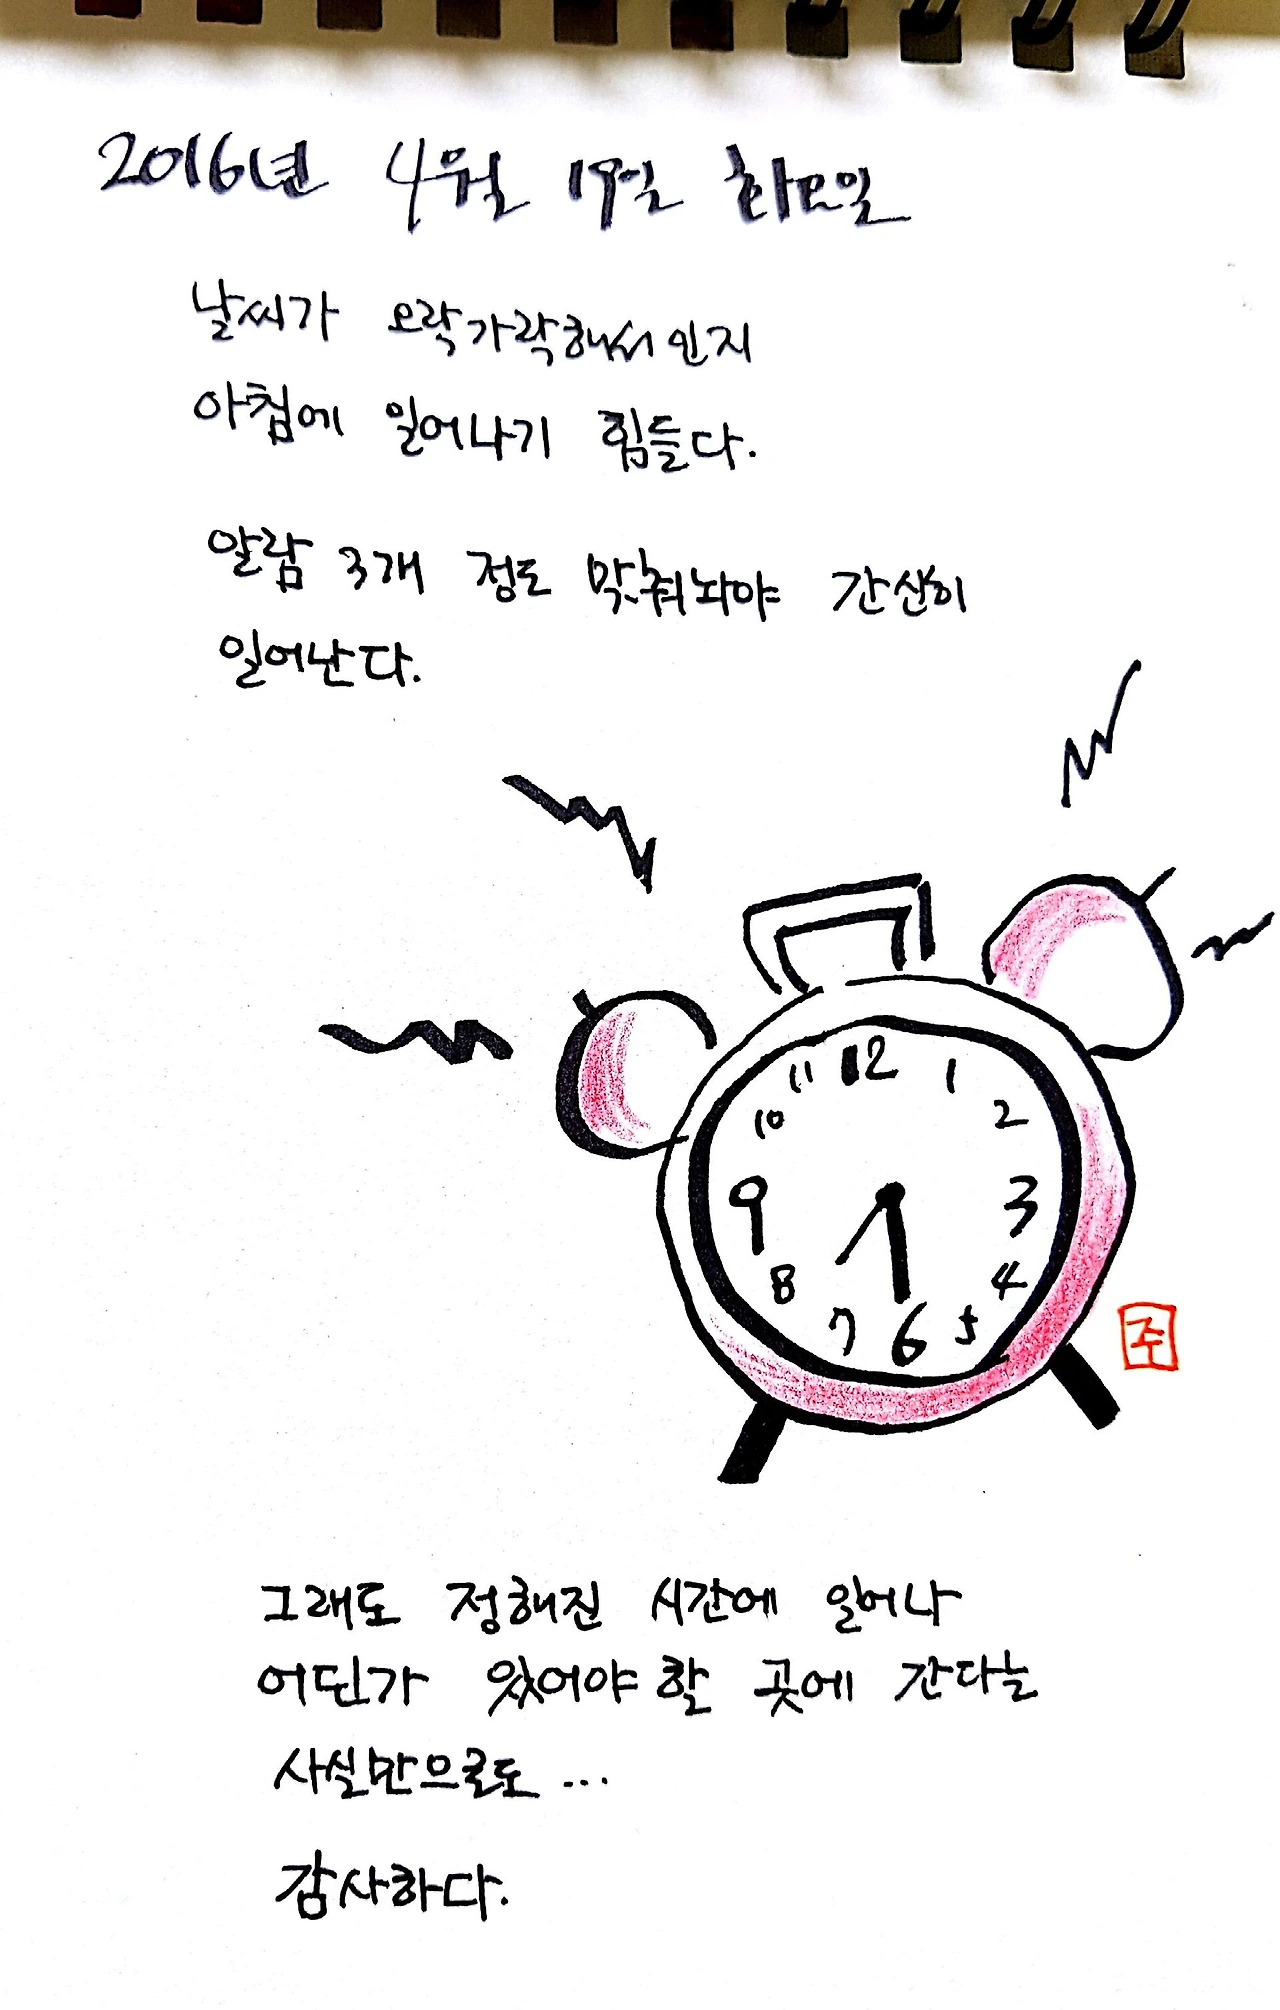 2016년 4월 19일 화요일
날씨가 오락가락해서인지
아침에 일어나기 힘들다.
알람 3개 정도 맞춰놔야 간신히
일어난다.
11 12 1
10 2
9 3
8 4
7 6 5
주
그래도 정해진 시간에 일어나
어딘가 있어야 할 곳에 간다는
사실만으로도 ...
감사하다.